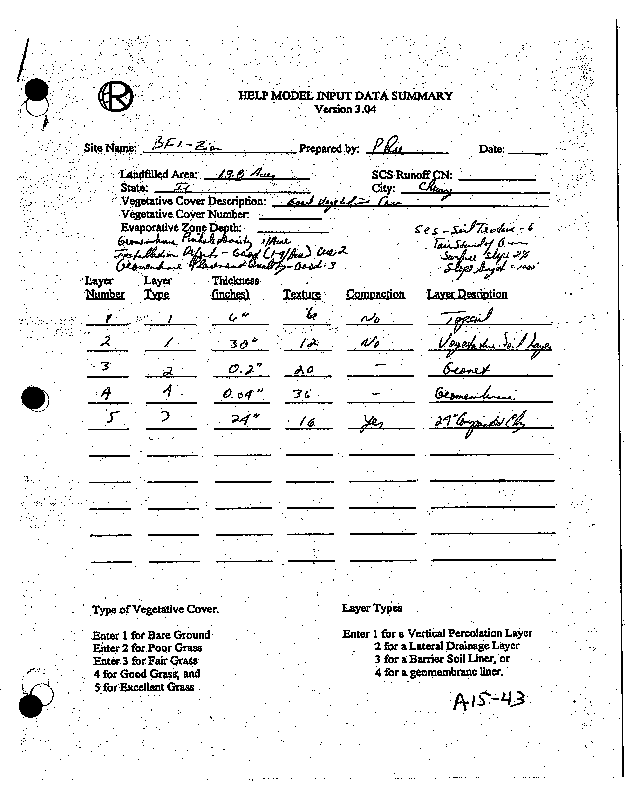 HELP MODEL INPUT DATA SUMMARY
Version 3.04
Site Name: BFI-Zion Prepared by: P Rue Date:
Landfilled Area: SCS Runoff CN:
State: IL City:
Vegetative Cover Description: Good
Vegetative Cover Number:
Evaporative Zone Depth:
SCS - Soil Texture - 6
Geomembrane Pinhole density 1/Acre
Installation Defects - Good (1-4/Acre) Use 2
Surface Slope 2%
Geomembrane Placement Quality - Good: 3
Layer Number Layer Type Thickness (inches) Texture Compaction Layer Description
1 1 6" No Topsoil
2 1 30" 12 No Vegetative Soil Layer
3 2 0.2" 20 - Geonet
4 4 0.04" 36 - Geomembrane
5 3 24" 16 Yes 24" Compacted Clay
Type of Vegetative Cover. Layer Types
Enter 1 for Bare Ground Enter 1 for a Vertical Percolation Layer
Enter 2 for Poor Grass 2 for a Lateral Drainage Layer
Enter 3 for Fair Grass 3 for a Barrier Soil Liner, or
4 for Good Grass, and 4 for a geomembrane liner.
5 for Excellent Grass
A15-43